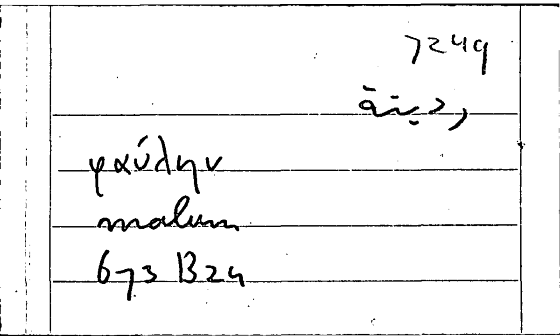 7249
رديئة
φαύλην
malum
673 B24